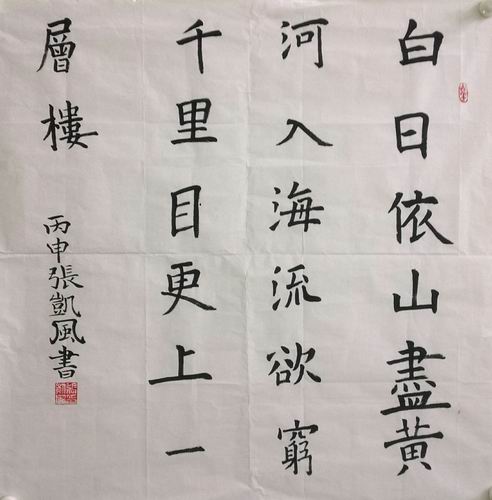 白日依山盡黄
河入海流欲窮
千里目更上一
層樓
丙申張凱風書